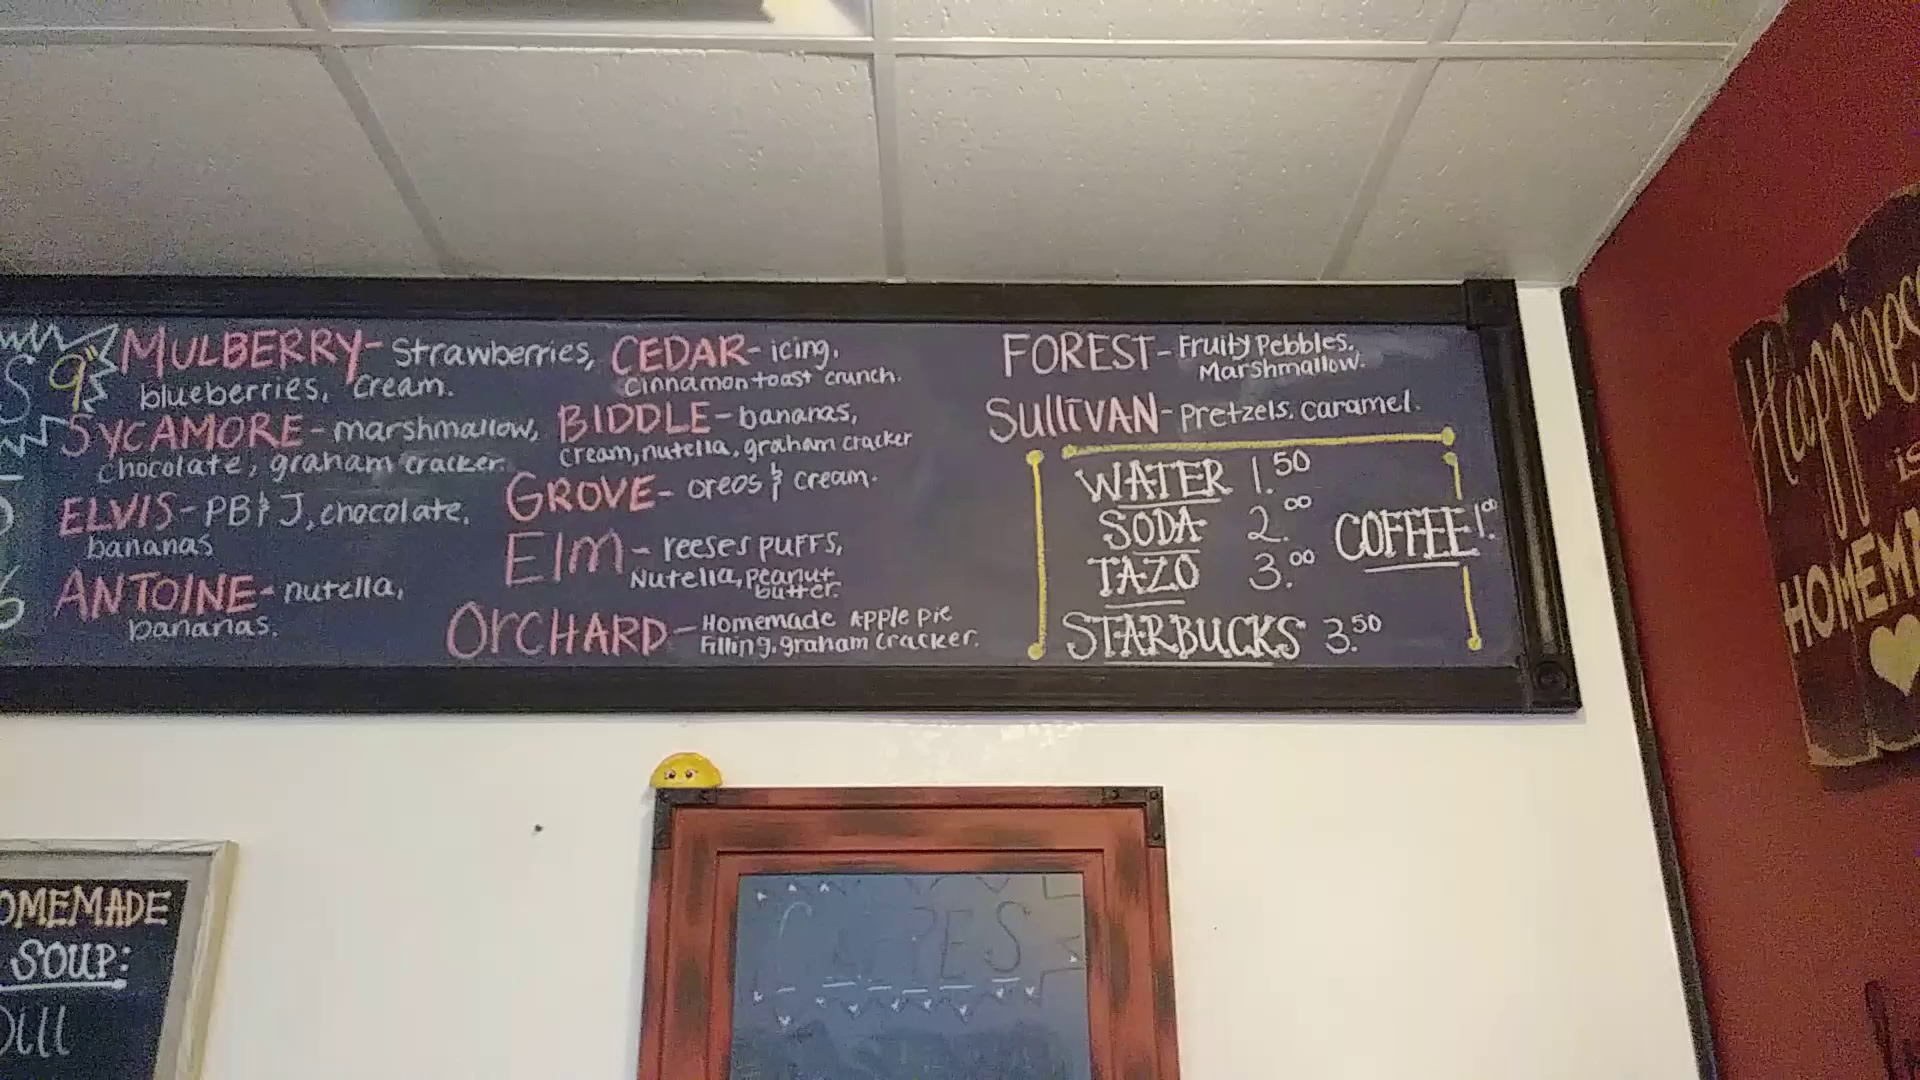 S 9
MULBERRY- Strawberries,
blueberries, cream.
SYCAMORE - marshmallow,
chocolate, graham cracker.
ELVIS - PB & J, chocolate,
bananas
ANTOINE - nutella,
bananas.
CEDAR - icing,
cinnamon toast crunch.
BIDDLE - bananas,
cream, nutella, graham cracker
GROVE - oreos & cream.
Elm - reeses PUFFS,
Nutella, peanut
butter.
OrCHARD - Homemade Apple Pie
Filling, graham cracker.
FOREST - Fruity Pebbles.
Marshmallow.
SullIVAN - Pretzels, caramel.
WATER 1.50
SODA 2.00
TAZO 3.00
COFFEE 1.00
STARBUCKS 3.50
Happiness
is
HOMEM
OMEMADE
SOUP:
Dill